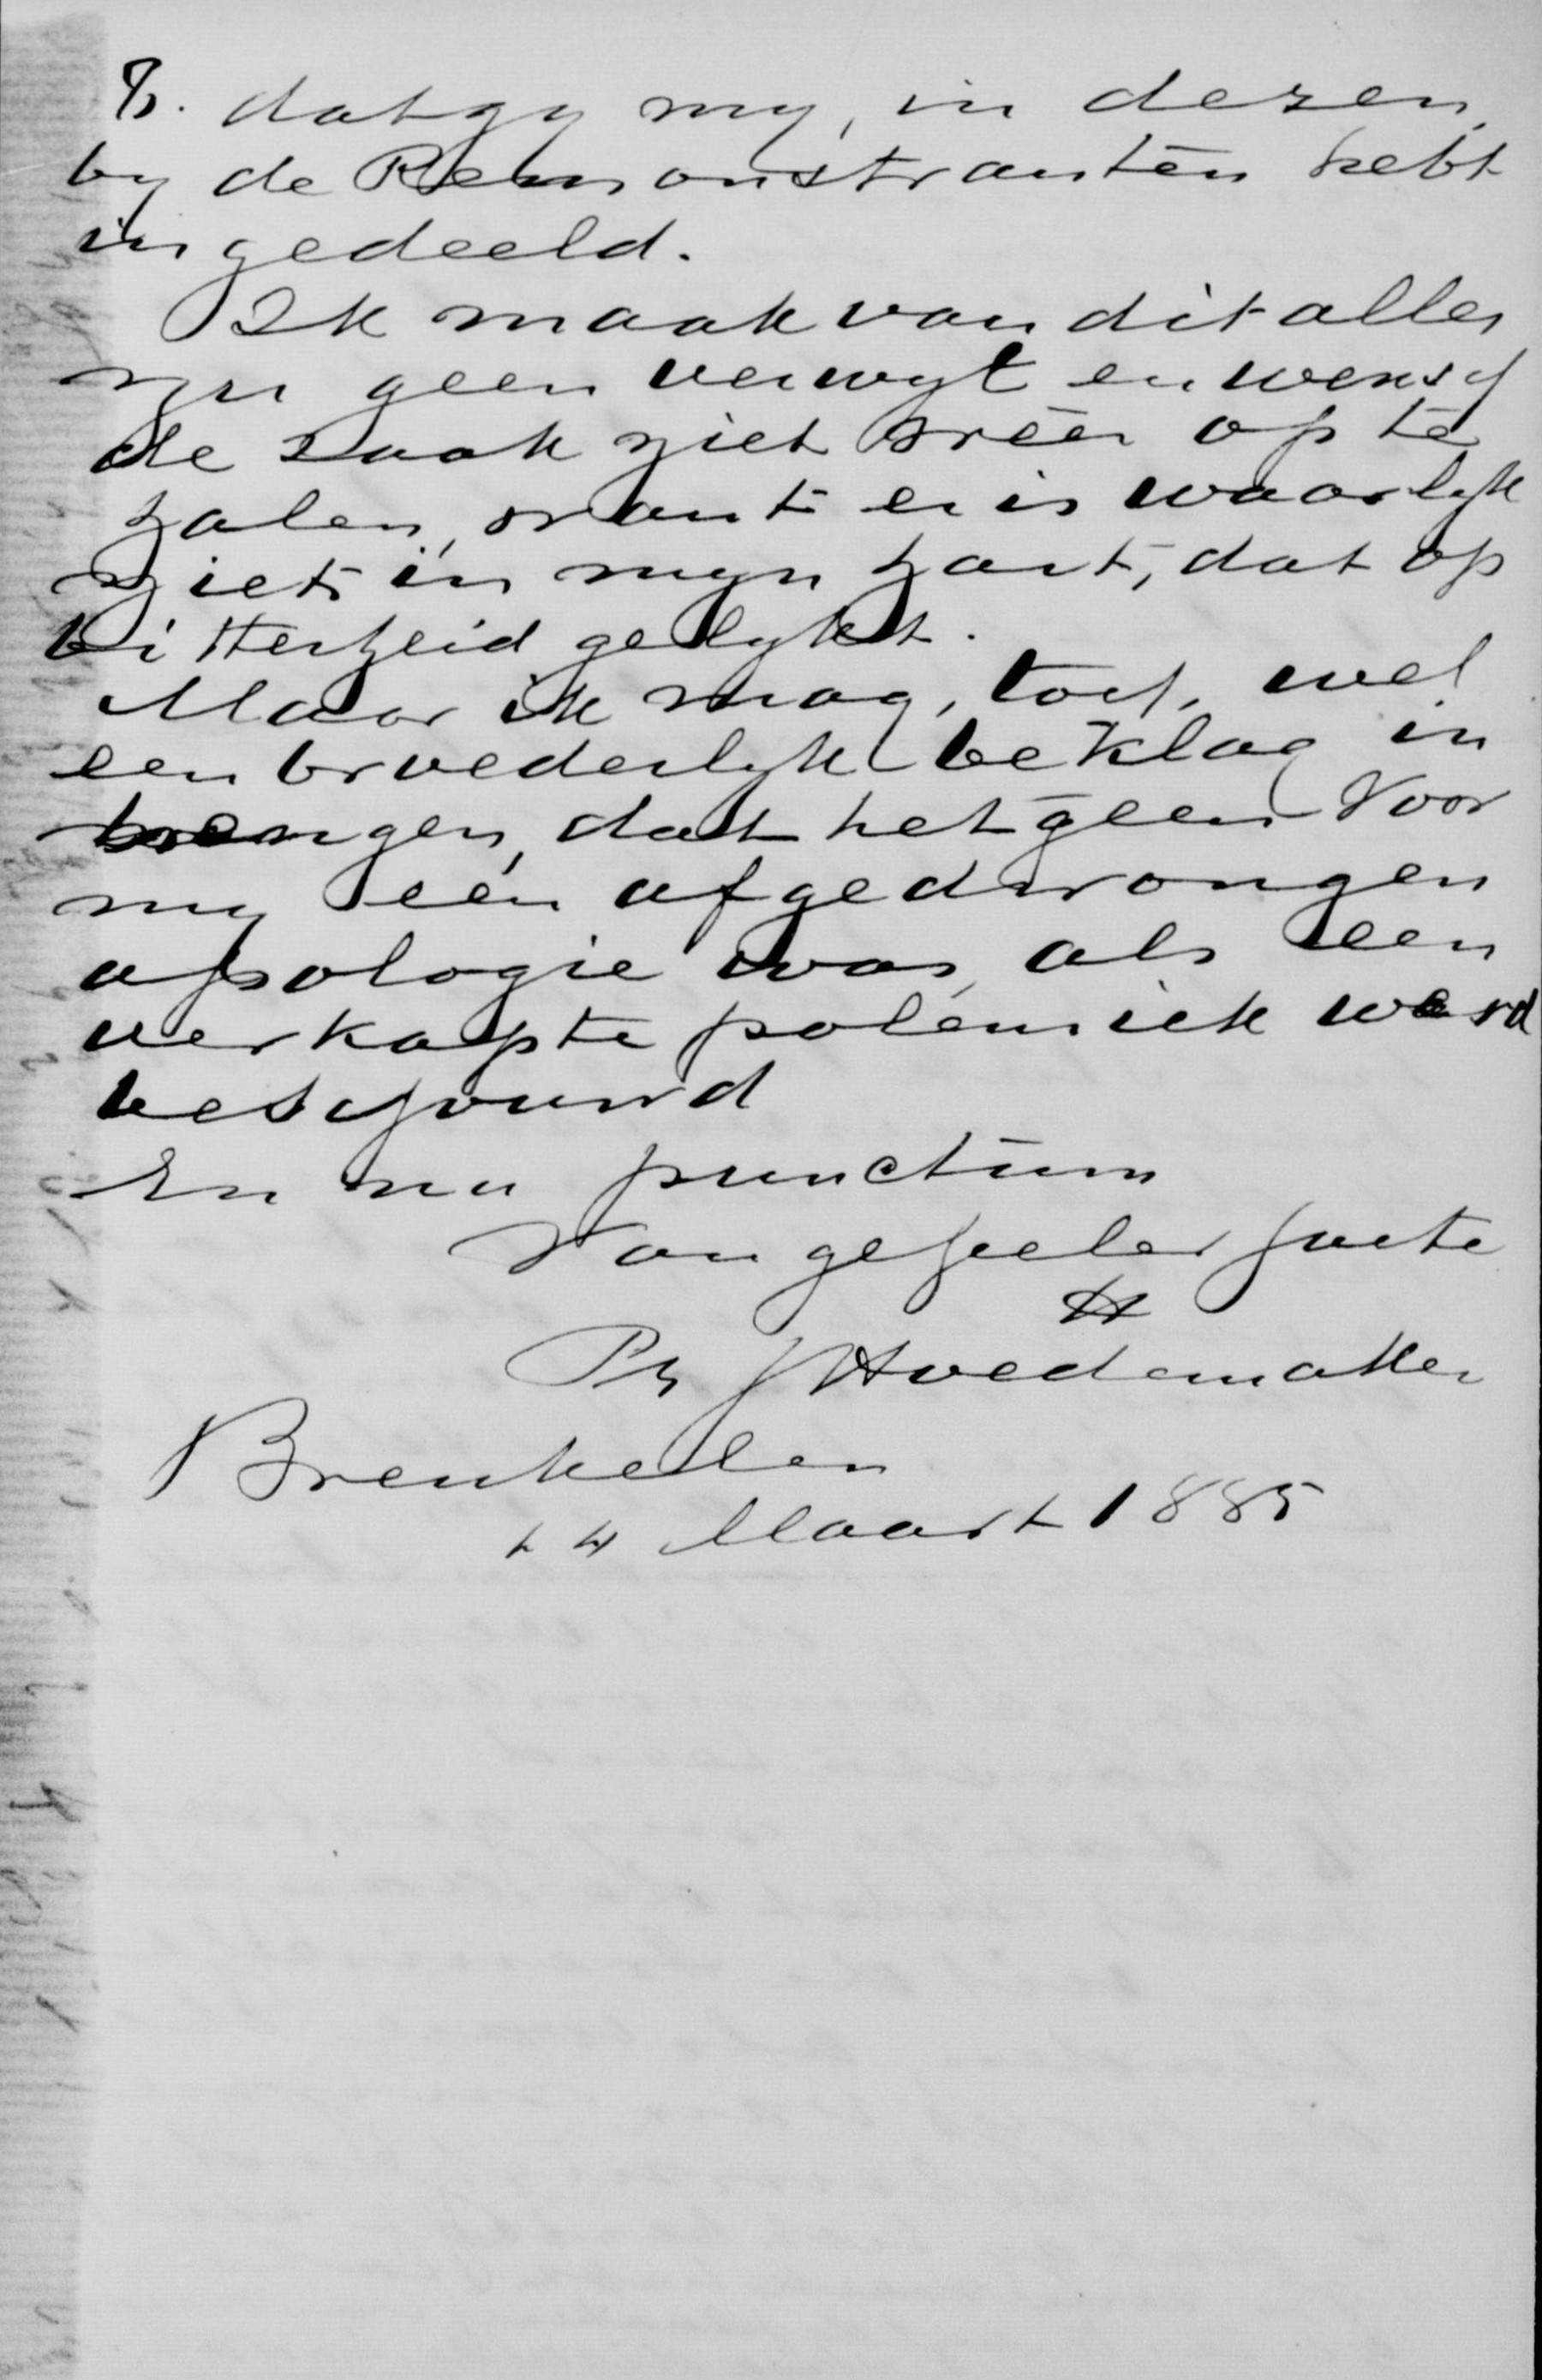 8. dat gy my, in dezen,
by de Remonstranten hebt
ingedeeld.
Ik maak van dit alles
nu geen verwyt en wensch
de zaak niet weer op te
halen, want er is waarlyk
niets in myn hart, dat op
bitterheid gelykt.
Maar ik mag, toch, wel
een broederlyk beklag in
brengen, dat hetgeen voor
my een afgedwongen
apologie was, als een
verkapte polemiek werd
beschouwd
En nu punctum
Van geheeler harte
tt
Ph J Hoedemaker
Breukelen
14 Maart 1885